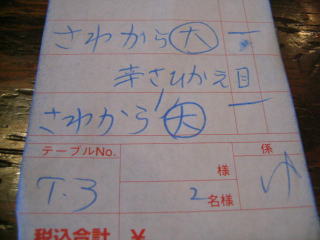 さわから 大 一
辛さひかえ目
さわから 大 一
テーブルNo. 係
T.3 様 ゆ
2名様
税込合計 ¥